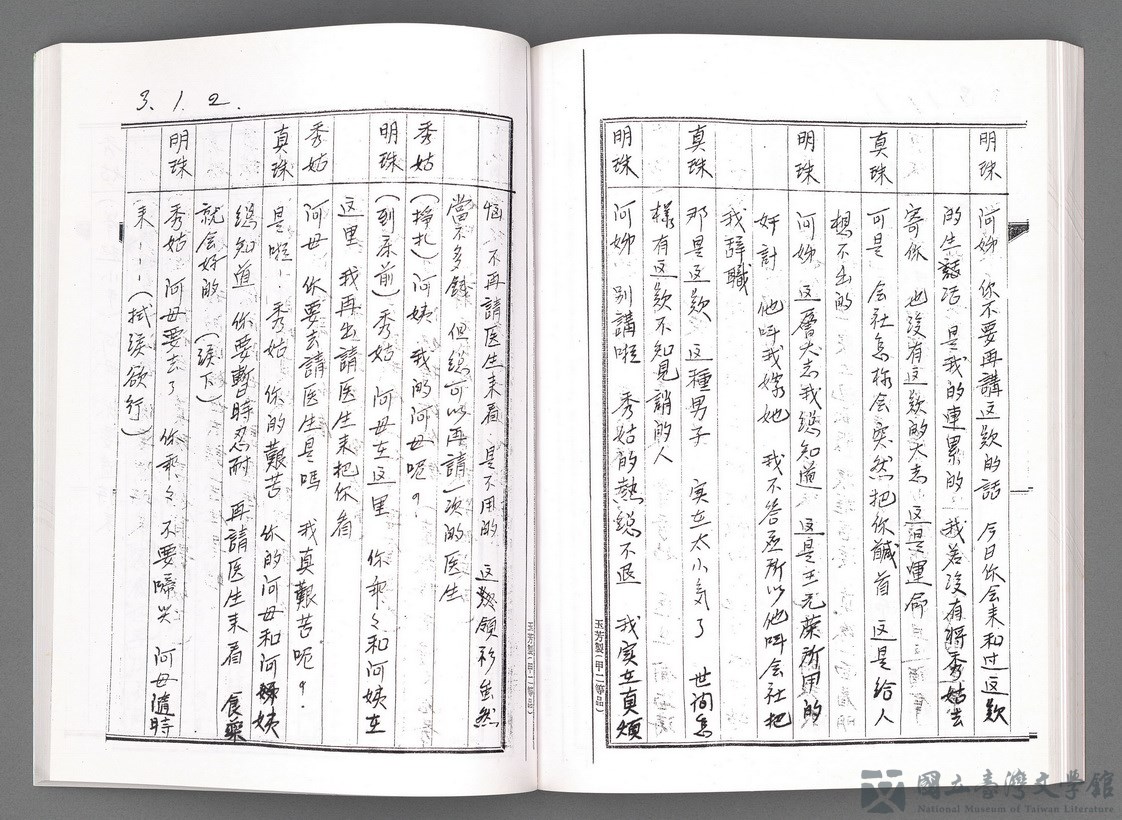 明珠 阿姊 你不要再講這款的話 今日你会來和过這款
的生活 是我的連累的 我若沒有將秀姑去
寄你 也沒有這款的大志 這是運命
真珠 可是 会社怎樣会突然把你馘首 這是給人
想不出的
明珠 阿姊 這層大志我總知道 這是王元葉所用的
奸計 他叫我嫁她 我不答应所以他叫会社把
我辞職
真珠 那是這款 這種男子 实在太小気了 世间怎
樣有這款不知見誚的人
明珠 阿姊 別講啦 秀姑的熱總不退 我实在真煩
惱 不再請医生來看 是不用的 這領衫虽然
當不多錢 但總可以再請一次的医生
秀姑 (掙扎)阿姨 我的阿母呢?
明珠 (到床前)秀姑 阿母在這里 你乖々和阿姨在
這里 我再出請医生來把你看
秀姑 阿母 你要去請医生是嗎 我真艱苦呃?
真珠 是啦! 秀姑 你的艱苦 你的阿母和阿姨
總知道 你要暫時忍耐 再請医生來看 食藥
就会好的 (淚下)
明珠 秀姑 阿母要去了 你乖々 不要啼哭 阿母隨時
來---(拭淚欲行)
3.1.2.
玉芳製(甲二等品)
國立臺灣文学館
National Museum of Taiwan Literature